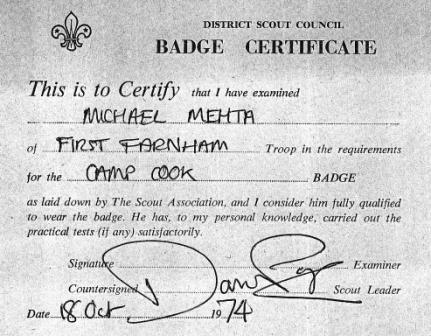 DISTRICT SCOUT COUNCIL
BADGE CERTIFICATE
This is to Certify that I have examined
MICHAEL MEHTA
of FIRST FARNHAM Troop in the requirements
for the CAMP COOK BADGE
as laid down by The Scout Association, and I consider him fully qualified
to wear the badge. He has, to my personal knowledge, carried out the
practical tests (if any) satisfactorily.
Signature Examiner
Countersigned Scout Leader
Date 18 Oct 1974